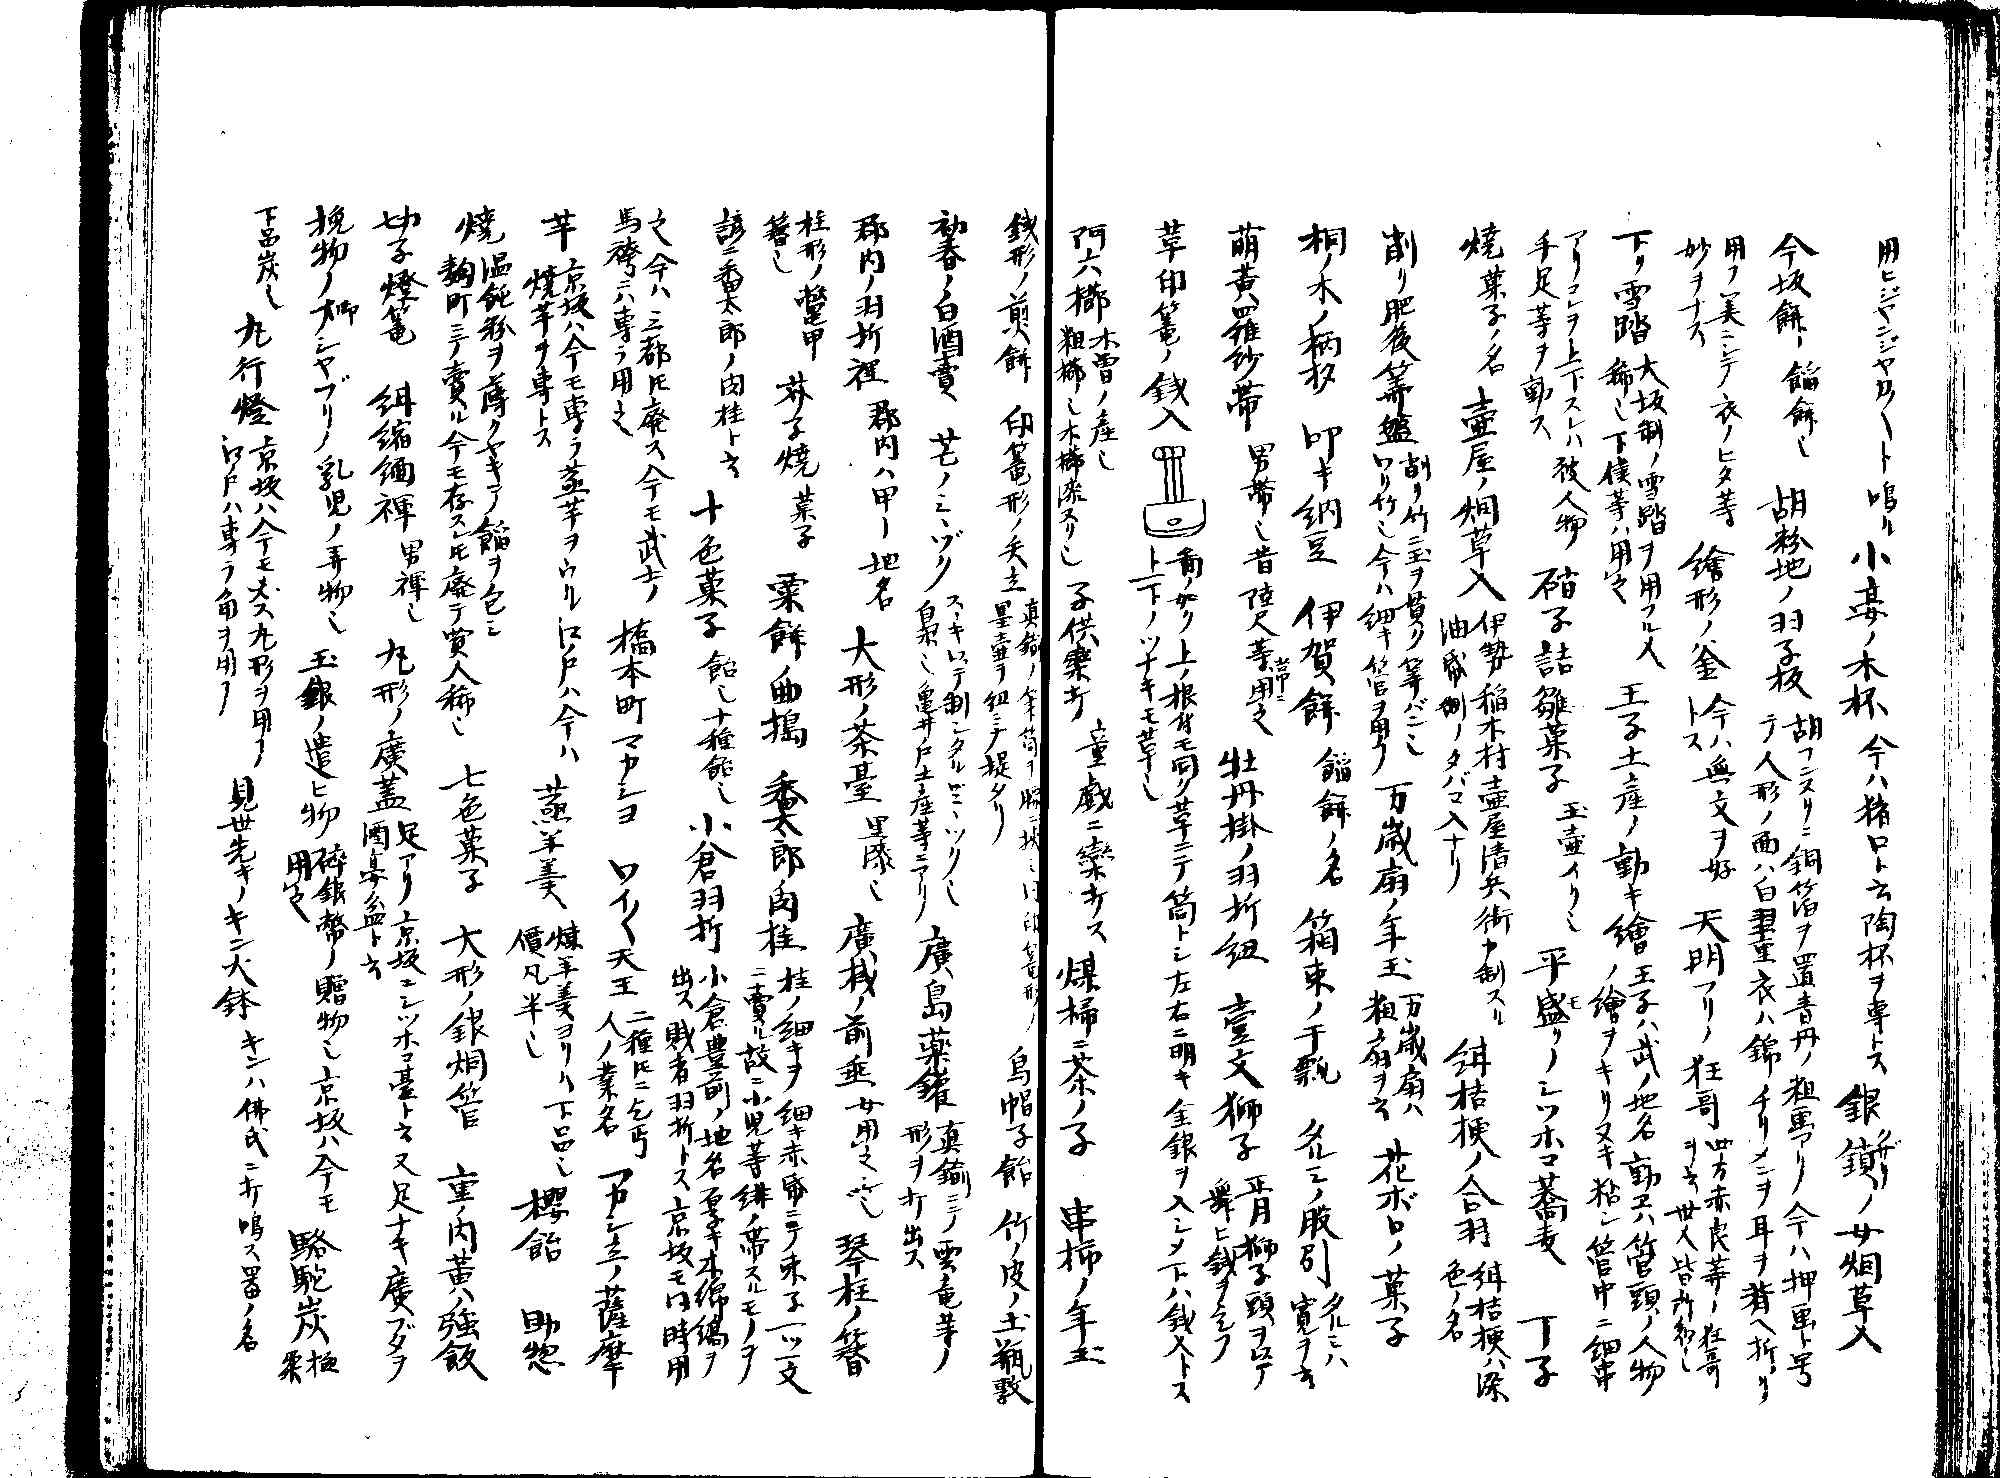 用ヒジヤンジヤカ〳〵ト鳴ル 小蓋ノ木杯 今ハ猪口ト云陶杯ヲ専トス 銀鎖ノ女烟草入
今坂餅 餡餅也 胡粉地ノ羽子板 胡フンヌリニ銅箔ヲ置青丹ノ粗画アリ今ハ押画ト号
テ人形ノ面ハ白
用フ美ニシテ衣ノヒダ等妙ヲナス 繪形ノ釜 今ハ無文ヲ好トス 天明フリノ狂哥 四方赤良等ノ狂哥ヲ云世人皆
下リ雪踏 大坂制ノ雪踏ヲ用フル人稀也下僕等ハ用之 王子土産ノ動キ繪 王子ハ武ノ地名動ヱハ管頭ノ人物
ノ繪ヲキリヌキ粘シ管中ニ細串
アリコレヲ上下スレハ彼人物手足等ヲ動ス 硝子詰雛菓子 玉壷イリ也 平盛リノシツホコ蕎麦 丁子
焼菓子ノ名 壷屋ノ烟草入 伊勢稲木村壷屋清兵衛カ制スル
油紙制ノタバコ入ナリ 紺桔梗ノ合羽 紺桔梗ハ染色ノ名
削リ肥後箒盤 削リ竹ニ玉ヲ貫ク
ワリ竹也今ハ細キ管ヲ用フ 万歳扇ノ年玉 万歳扇ハ粗扇ヲ云 花ボロノ菓子
桐ノ木ノ柄杓 叩キ納豆 伊賀餅 餡餅ノ名 箱束ノ干瓢 タルミノ股引 タルミハ寛ヲ云
萌黄羅紗帯 男帯也昔陸尺等常ニ用之 牡丹掛ノ羽折紐 壹文獅子 正月獅子頭ヲ
舞ヒ銭ヲ乞フ
草印篭ノ銭入 首ノ如ク上ノ根付モ同ク草ニテ筒トシ左右ニ明キ金銀ヲ入シメ下ハ銭入トス
ト下ノツナキモ草也
阿六櫛 木曽ノ産也
粗櫛也木櫛染ヌリ也 子供楽書 童戯ニ楽書ス 煤掃ニ茶ノ子 串柿ノ年玉
銭形ノ煎餅 印篭形ノ矢立 真鍮ノ
墨壷ヲ紐ニテ提タリ 烏帽子飴 竹ノ皮ノ土瓶敷
初春ノ白酒賣 芒ノミヽヅク スヽキ以テ制シタルミヽツク也
廣島薬鑵 真鍮ニテ雲竜等ノ形ヲ打出ス
郡内ノ羽折裡 郡内ハ甲ノ地名 大形ノ茶臺 黒漆也 廣桟ノ前垂 女用之 琴柱ノ簪
柱形ノ鼈甲簪也 芥子焼 菓子 粟餅ノ曲搗 番太郎肉桂 桂ノ細キヲ細キ赤紙ニテ
ニ賣ル故ニ小児等
諺ニ番太郎ノ肉桂ト云 十色菓子 飴也十種飴也 小倉羽折 小倉豊前ノ地名厚キ木綿縞ヲ
出ス賎者羽折トス京坂モ同時用
之今ハ三都トモ廃ス今モ武士ノ馬袴ニハ専ラ用之 橋本町マカシヨ ワイ〳〵天王 二種トモニ乞丐人ノ業名 アカシ立ノ薩摩
芋 京坂ハ今モ専ラ蒸芋ヲウル江戸ハ今ハ焼芋ヲ専トス 蒸羊羹 煉羊羹ヨリハ下品也
價凡半也 櫻飴 助惣
焼 温飩粉ヲ薄クヤキテ餡ヲ包ミ
麹町ニテ賣ル今モ存スレトモ廃テ賞人稀也 七色菓子 大形ノ銀烟管 重ノ内黄ハ強飯
切子燈篭 緋縮緬褌 男褌也 丸形ノ廣蓋 足アリ京坂ニシツホコ臺ト云又足ナキ廣ブタヲ
酒臺盆ト云
挽物ノ櫛 シヤブリノ乳児ノ弄物也 玉銀ノ遣ヒ物 碎銀幣ノ贈物也京坂ハ今モ用之 駱駝炭 極粟
下品炭也 丸行燈 京坂ハ今モ丸形ヲ用フ
江戸ハ専ラ角ヲ用フ 見世先キノキン大鉢 キンハ佛氏ニ打鳴ス器ノ名